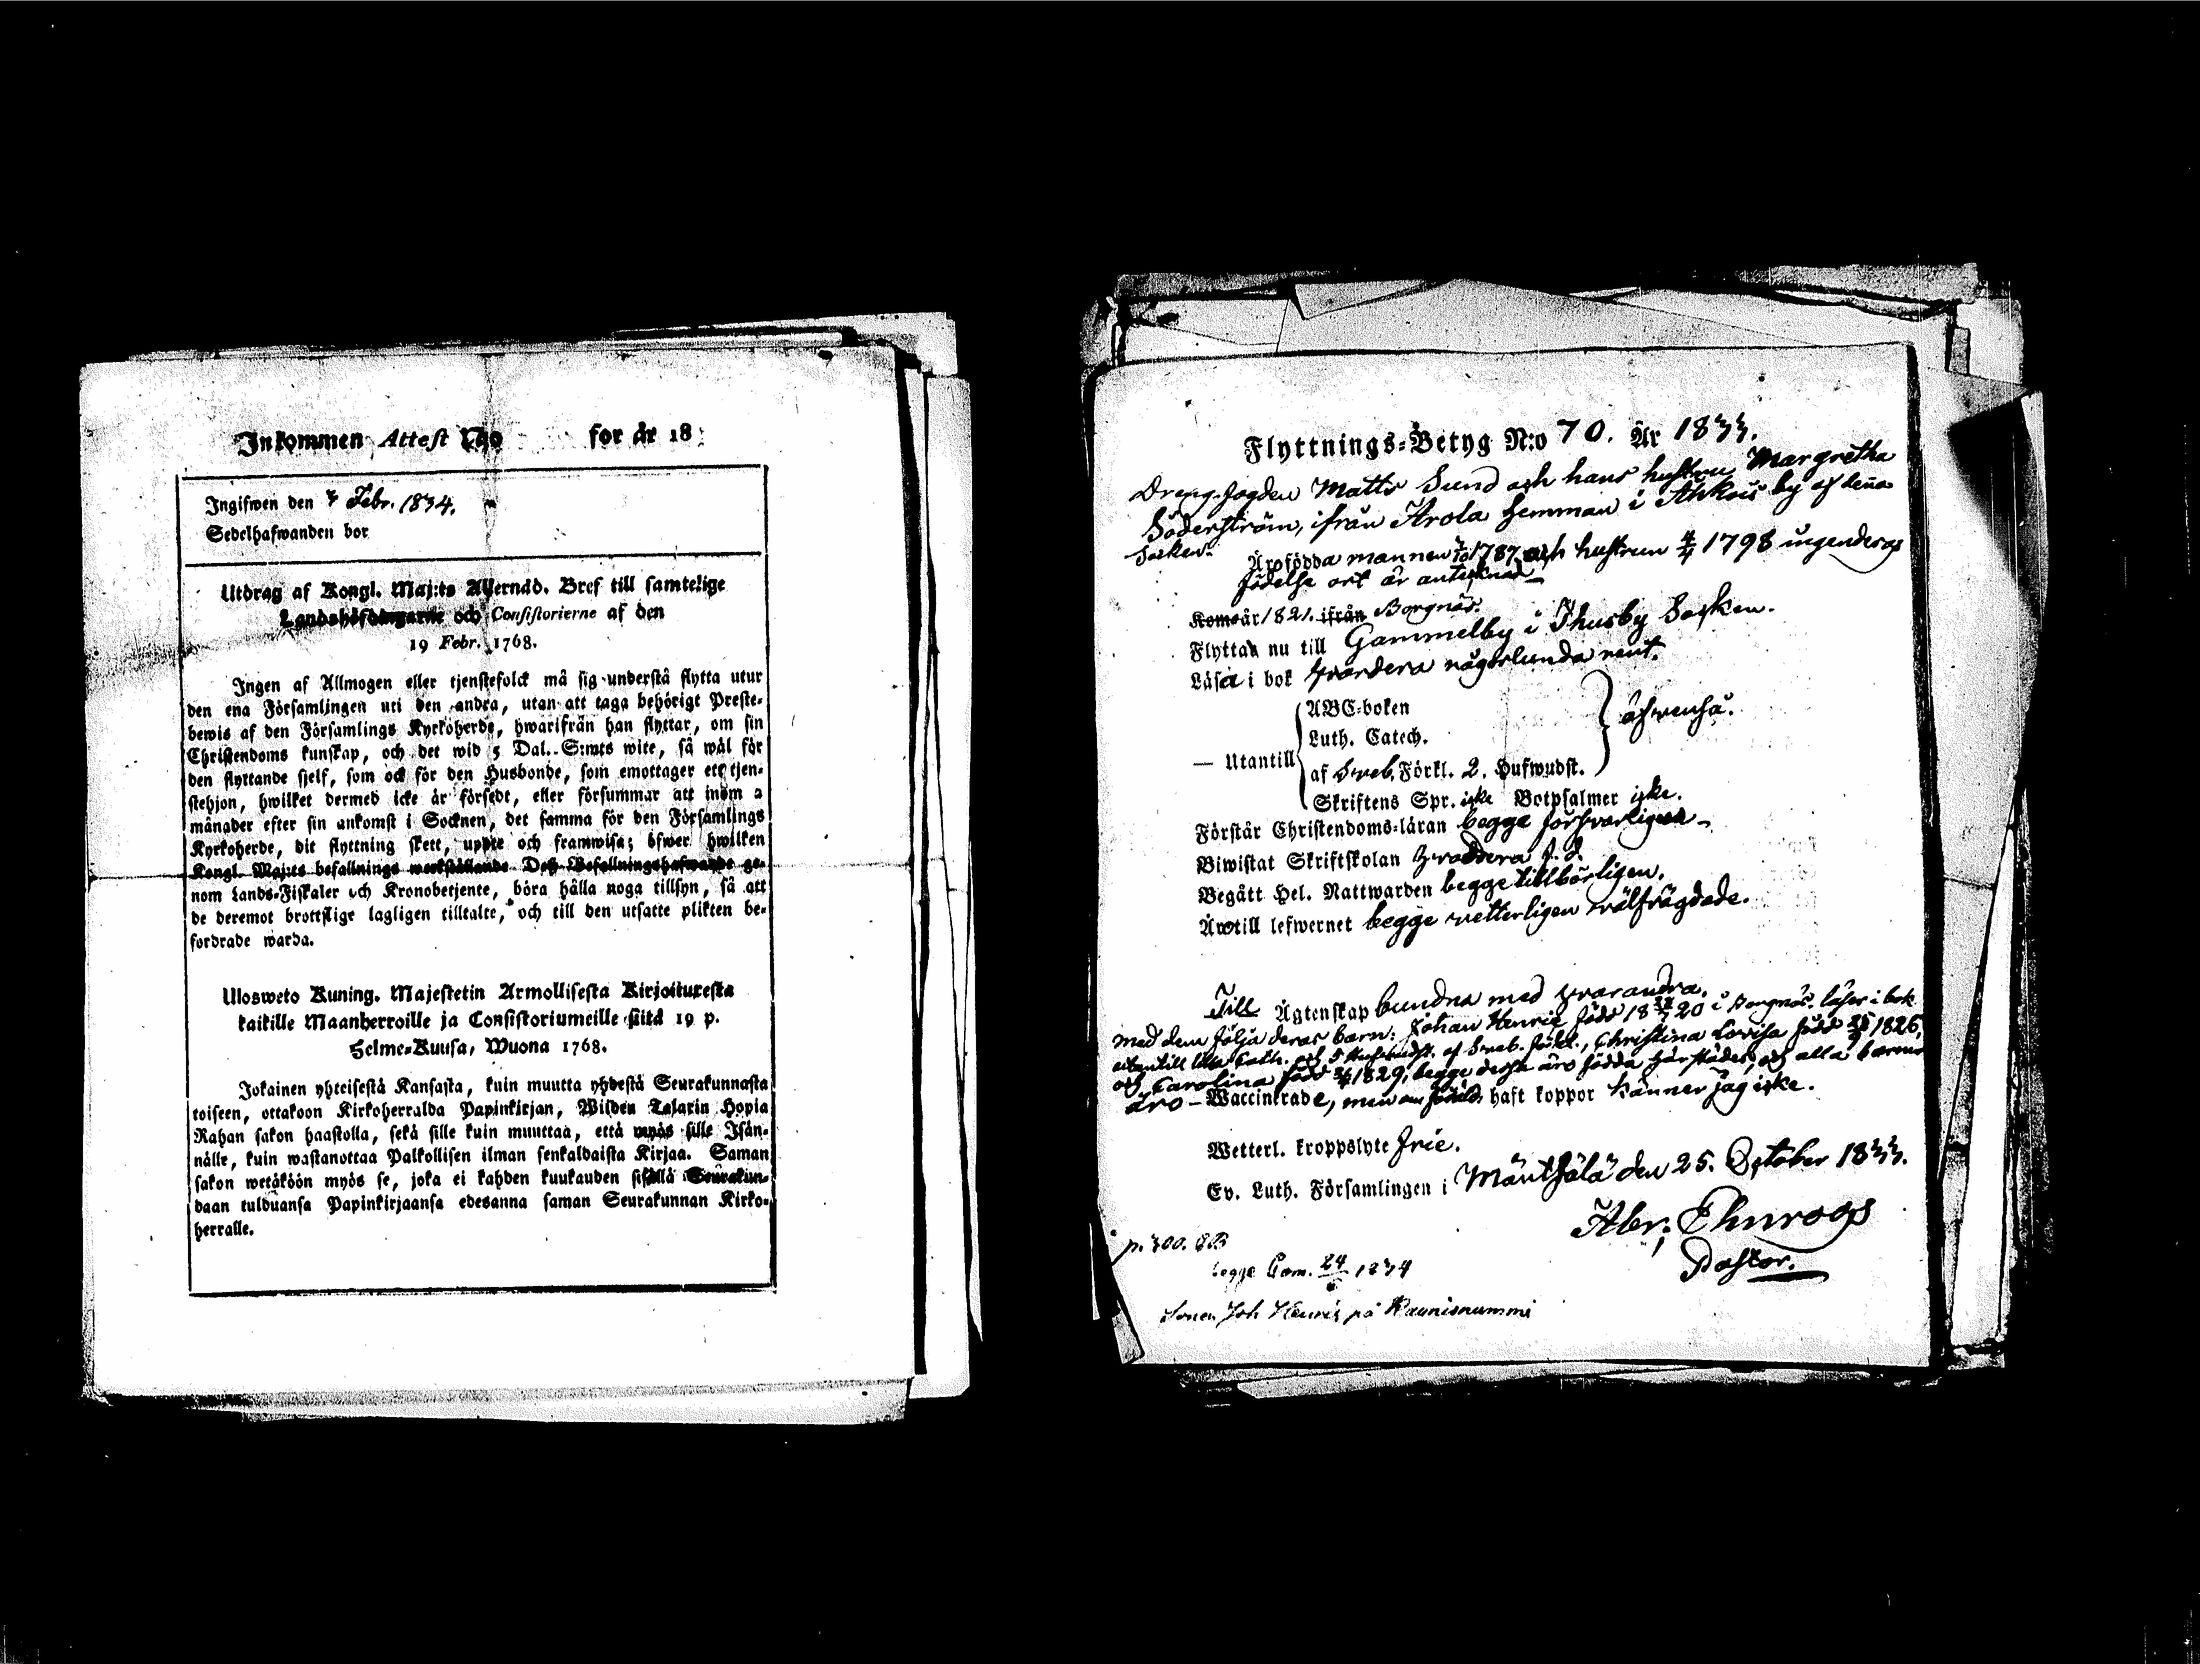 Inkommen Attest N:o for år 18
Ingifwen den 3 Febr. 1834.
Sedelhafwanden bor
Utdrag af Kongl. Maj:ts Allernåd. Bref till samtelige
Landshöfdingarne och Consistorierne af den
19 Febr. 1768.
Ingen af Allmogen eller tjenstefolck må sig understå flytta utur
den ena Församlingen uti den andra, utan att taga behörigt Preste-
bewis af den Församlings Kyrkoherde, hwarifrån han flyttar, om sin
Christendoms kunskap, och det wid 5 Dal. S:mts wite, så wäl för
den flyttande sjelf, som ock för den Husbonde, som emottager ett tjen-
stehjon, hwilket dermed icke är försedt, eller försummar att inom 2
månader efter sin ankomst i Socknen, det samma för den Församlings
Kyrkoherde, dit flyttning skett, uppte och framwisa; öfwer hwilken
Kongl. Maj:ts befallnings werkställande Deß Befallningshafwande ge-
nom Lands-Fiskaler och Kronobetjente, böra hålla noga tillsyn, så att
de deremot brottslige lagligen tilltalte, och till den utsatte plikten be-
fordrade warda.
Ulosweto Kuning. Majestetin Armollisesta Kirjoituxesta
kaikille Maanherroille ja Consistoriumeille siitä 19 p.
Helme-Kuusa, Wuona 1768.
Jokainen yhteisestä Kansasta, kuin muutta yhdestä Seurakunnasta
toiseen, ottakoon Kirkoherralda Papinkirjan, Wiiden Talarin Hopia
Rahan sakon haastolla, sekä sille kuin muuttaa, että myös sille Isän-
nälle, kuin wastanottaa Palkollisen ilman senkaldaista Kirjaa. Saman
sakon wetäköön myös se, joka ei kahden kuukauden sisällä Seurakun-
daan tulduansa Papinkirjaansa edesanna saman Seurakunnan Kirko-
herralle.
Flyttnings-Betyg N:o 70. År 1833.
Dreng-fogden Matts Sund och hans hustru Margretha
Söderström, ifrån Arola Hemman i Ahkois by af denna
Socken.
Äro födda mannen 1787 och hustrun 4/4 1798 ingenderas
födelse ort är antecknad
Kom år 1821. ifrån Borgnäs.
Flyttar nu till Gammelby i Thusby Socken.
Läsa i bok hvardera någorlunda rent.
ABC-boken
Luth. Catech.
— Utantill äfvenså.
af Sveb. Förkl. 2. Hufwudst.
Skriftens Spr. icke Botpsalmer icke.
Förstår Christendoms-läran begge försvarligen
Biwistat Skriftskolan hvardera f. d.
Begått Hel. Nattwarden begge tillbörligen.
Äro till lefwernet begge vetterligen välfrägdade.
Till Ägtenskap bundna med hvarandra.
med dem följa deras barn: Johan Henric född 1820 i Borgnäs, läser i bok
utantill Cath. och 5 Hufvudst. af Sveb. förkl., Christina Lovisa född 1826,
och Carolina född 1829, begge dessa äro födda här städes, och alla barnen
äro Waccinerade, men om föräld. haft koppor känner jag icke.
Wetterl. kroppslyte frie.
Ev. Luth. Församlingen i Mäntsälä den 25. October 1833.
Abr. Ehnroos
Pastor.
p. 300.
begge Com. 24 1834
Sonen Joh Henric på Raunisnummi